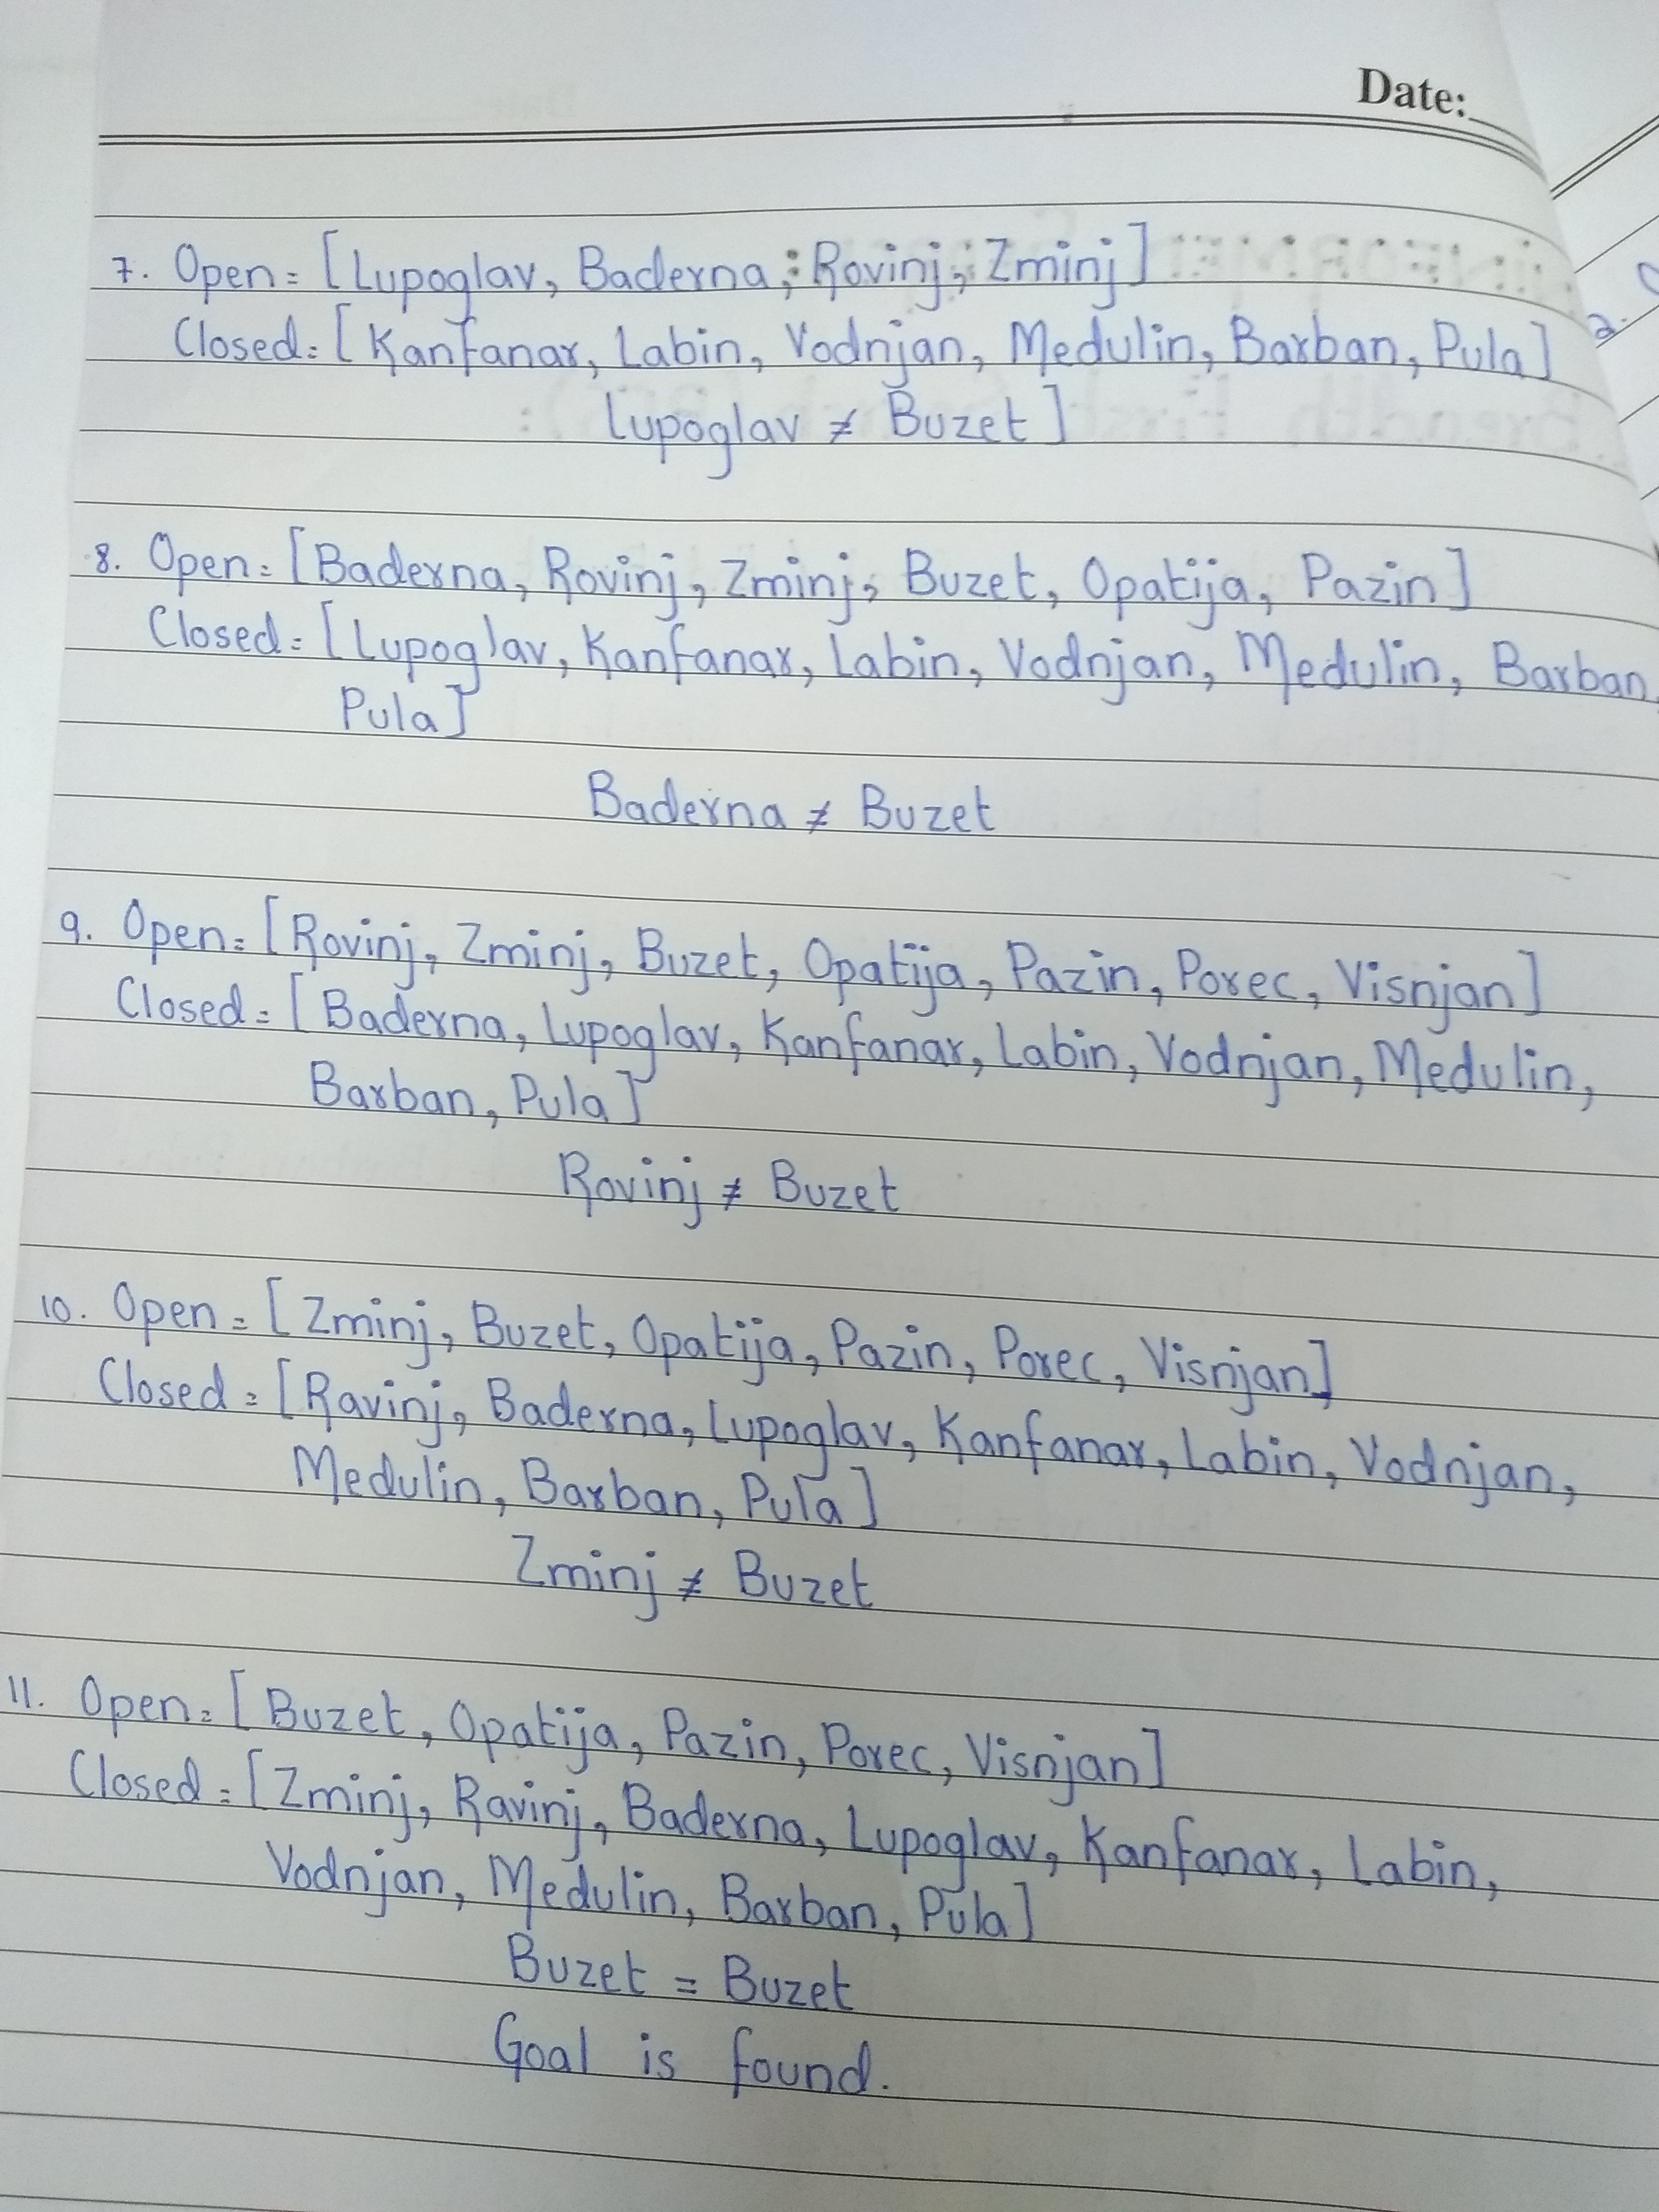 Date:
7. Open = [Lupoglav, Baderna, Rovinj, Zminj]
Closed = [Kanfanar, Labin, Vodnjan, Medulin, Barban, Pula]
Lupoglav ≠ Buzet]
8. Open = [Baderna, Rovinj, Zminj, Buzet, Opatija, Pazin]
Closed = [Lupoglav, Kanfanar, Labin, Vodnjan, Medulin, Barban,
Pula]
Baderna ≠ Buzet
9. Open = [Rovinj, Zminj, Buzet, Opatija, Pazin, Porec, Visnjan]
Closed = [Baderna, Lupoglav, Kanfanar, Labin, Vodnjan, Medulin,
Barban, Pula]
Rovinj ≠ Buzet
10. Open = [Zminj, Buzet, Opatija, Pazin, Porec, Visnjan]
Closed = [Ravinj, Baderna, Lupoglav, Kanfanar, Labin, Vodnjan,
Medulin, Barban, Pula]
Zminj ≠ Buzet
11. Open = [Buzet, Opatija, Pazin, Porec, Visnjan]
Closed = [Zminj, Ravinj, Baderna, Lupoglav, Kanfanar, Labin,
Vodnjan, Medulin, Barban, Pula]
Buzet = Buzet
Goal is found.